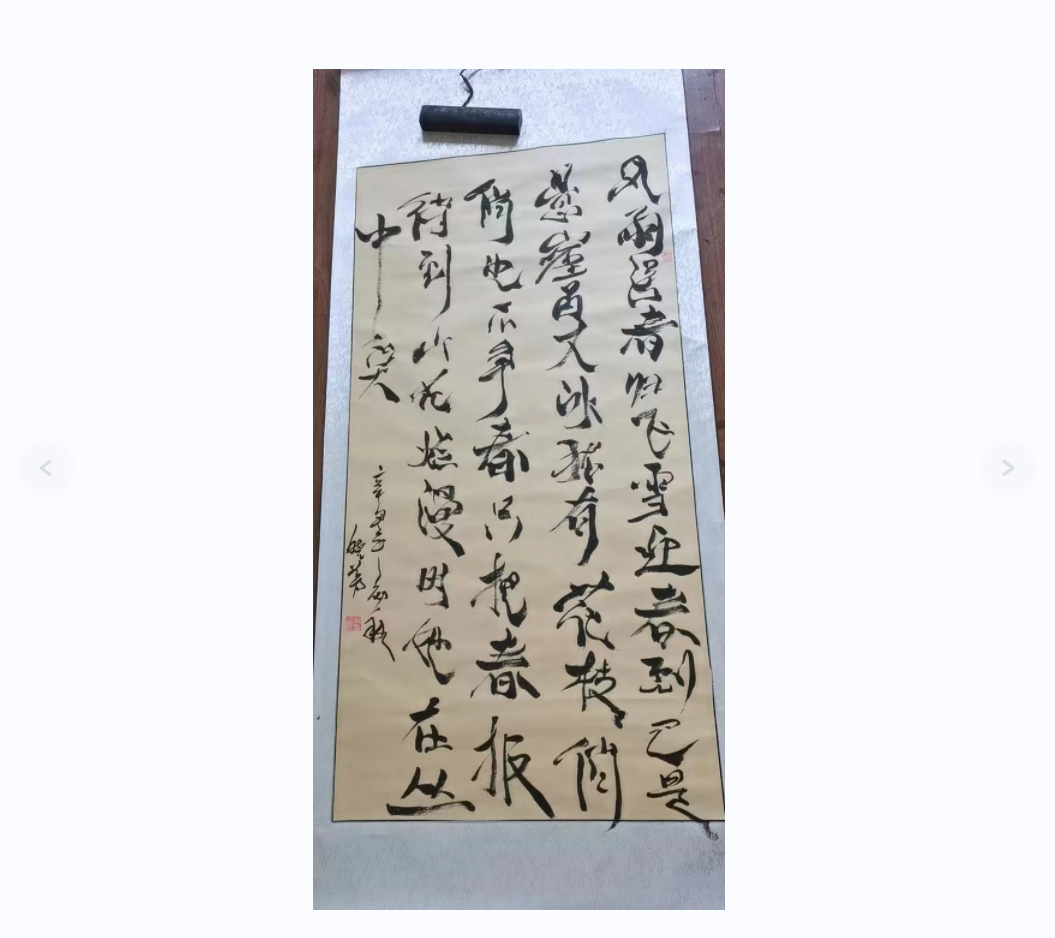 风雨送春归飞雪迎春到已是
悬崖百丈冰犹有花枝俏
俏也不争春只把春报
待到山花烂漫时她在丛
中笑
辛丑